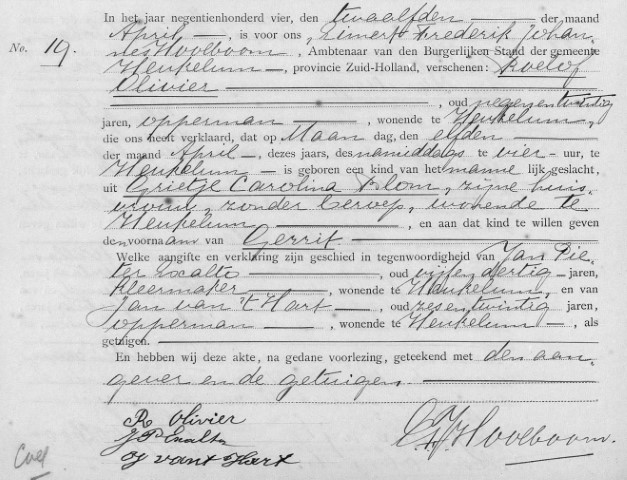 In het jaar negentienhonderd vier, den twaalfden der maand
April, is voor ons, Frederik Johan-
nes Hooeboom, Ambtenaar van den Burgerlijken Stand der gemeente
No. 19. Heukelum, provincie Zuid-Holland, verschenen: Roelof
Olivier
, oud negenentwintig
jaren, opperman, wonende te Heukelum,
die ons heeft verklaard, dat op Maandag, den elfden
der maand April, dezes jaars, des namiddags te vier uur, te
Heukelum is geboren een kind van het mannelijk geslacht,
uit Grietje Carolina Blom, zijne huis-
vrouw, zonder beroep, wonende te
Heukelum, en aan dat kind te willen geven
den voornaam van Gerrit.
Welke aangifte en verklaring zijn geschied in tegenwoordigheid van Jan Pie-
ter, oud vijfendertig jaren,
kleermaker, wonende te Heukelum, en van
Jan van 't Hart, oud zesentwintig jaren,
opperman, wonende te Heukelum, als
getuigen.
En hebben wij deze akte, na gedane voorlezing, geteekend met den aan-
gever en de getuigen.
R Olivier
J P
J van t Hart
Hooeboom.